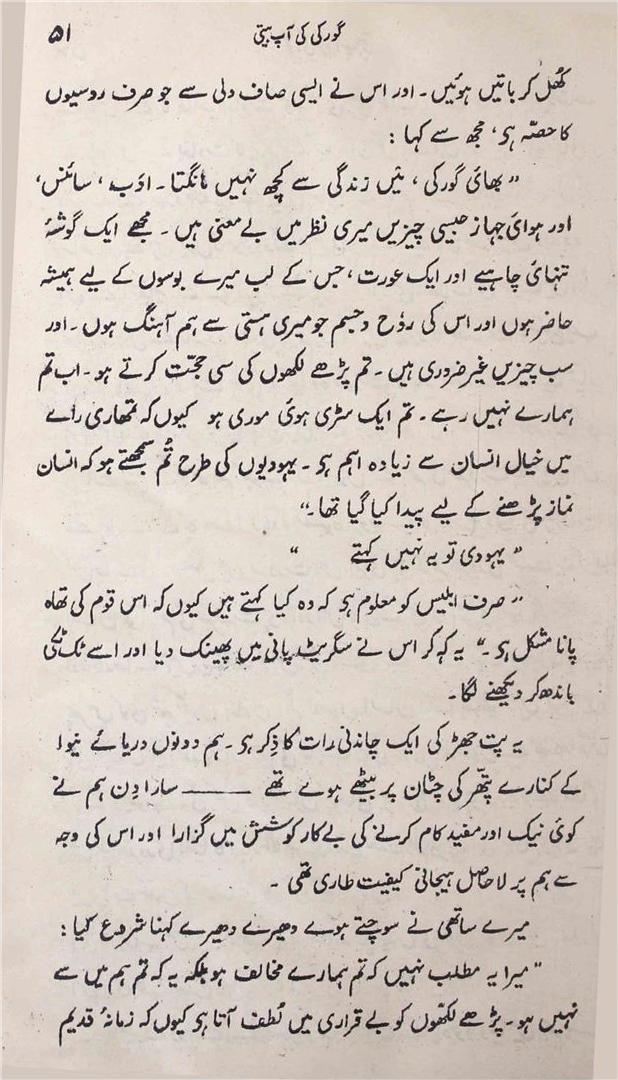 گورکی کی آپ بیتی ۵۱
کھُل کر باتیں ہوئیں۔ اور اس نے ایسی صاف دلی سے جو صرف روسیوں
کا حصّہ ہی، مجھ سے کہا :
”بھائی گورکی، مَیں زندگی سے کچھ نہیں مانگتا۔ ادَب، سائنس،
اور ہوائی جہاز جیسی چیزیں میری نظر میں بے معنی ہیں۔ مجھے ایک گوشۂ
تنہائی چاہیے اور ایک عورت، جس کے لب میرے بوسوں کے لیے ہمیشہ
حاضر ہوں اور اس کی روٗح و جسم جو میری ہستی سے ہم آہنگ ہوں۔ اور
سب چیزیں غیر ضروری ہیں۔ تم پڑھے لکھوں کی سی حجّت کرتے ہو۔ اب تم
ہمارے نہیں رہے۔ تم ایک سڑی ہوئی موری ہو کیوں کہ تمھاری راے
میں خیال انسان سے زیادہ اہم ہی۔ یہودیوں کی طرح تُم سمجھتے ہو کہ انسان
نماز پڑھنے کے لیے پیدا کیا گیا تھا۔“
”یہودی تو یہ نہیں کہتے “
”صرف ابلیس کو معلوم ہی کہ وہ کیا کہتے ہیں کیوں کہ اس قوم کی تھاہ
پانا مشکل ہی۔“ یہ کہہ کر اس نے سگریٹ پانی میں پھینک دیا اور اسے ٹک ٹکی
باندھ کر دیکھنے لگا۔
یہ پت جھڑ کی ایک چاندنی رات کا ذِکر ہی۔ ہم دونوں دریائے نیوا
کے کنارے پتھّر کی چٹان پر بیٹھے ہوے تھے ——— سارا دِن ہم نے
کوئی نیک اور مفید کام کرنے کی بے کار کوشش میں گزارا اور اس کی وجہ
سے ہم پر لاحاصل ہیجانی کیفیت طاری تھی۔
میرے ساتھی نے سوچتے ہوے دھیرے دھیرے کہنا شروع کیا :
”میرا یہ مطلب نہیں کہ تم ہمارے مخالف ہو بلکہ یہ کہ تم ہم میں سے
نہیں ہو۔ پڑھے لکھّوں کو بے قراری میں لُطف آتا ہی کیوں کہ زمانۂ قدیم